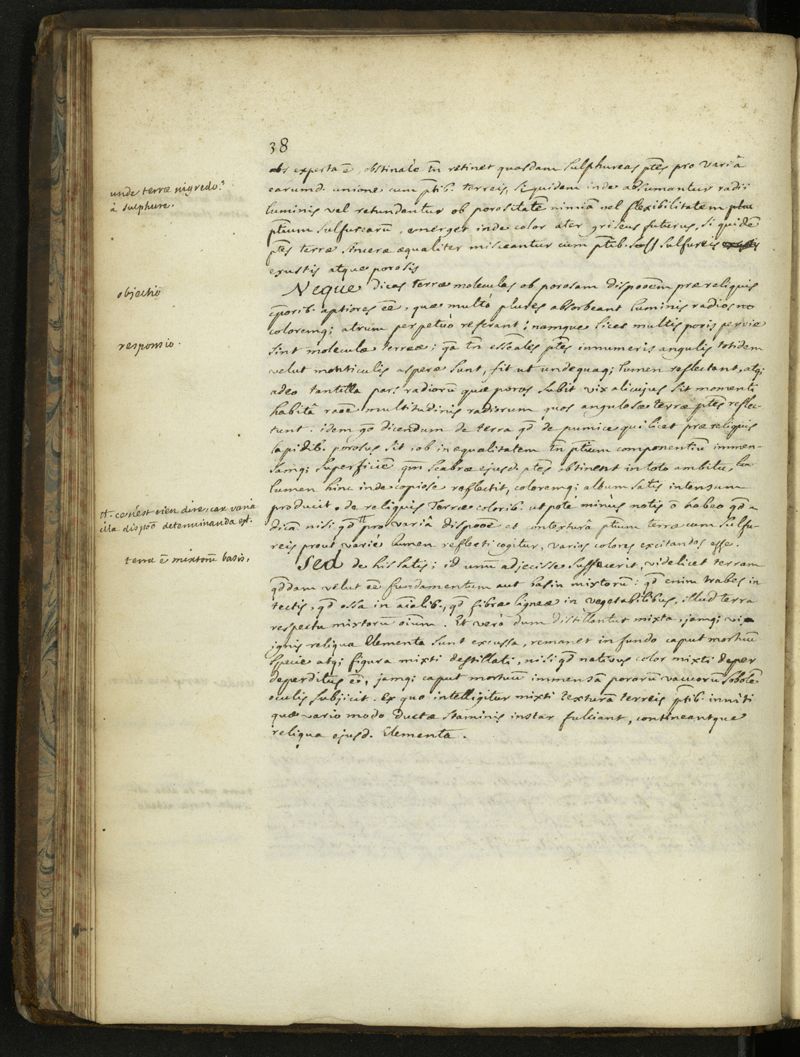 38
unde terræ nigredo?
a sulphure.
experta ē, obstinatè tñ retinet quasdam sulphureas ptes pro variâ
earumd. unione cum ptib. terreis, siquidem inde absumantur radii
luminis vel retundantur ob porositatē nimiā vel flexibilitatem
ptium sulfurearū, emerget inde color ater griseus futurus, si quidē
ptes terræ sincera æqualiter misceantur cum ptib. sulfureis
exustis atque porosis
objectio
Neque dicas terræ moleculas ob porosam dispoōem præ reliquis
cporib. aptiores eē, quæ multò plures absorbeant luminis radios
coloremq; atrum perpetuò referant; namque licet multis poris perviæ
responsio.
sint moleculæ terreæ; qa tñ essāles ptes innumeris angulis totidem
velut monticulis asperæ sunt, fit ut undequaq; lumen reflectant, atq;
adeo tantilla pars radiorū quæ poros subit vix alicujus sit momenti
habitâ raōe multitudinis radiorum quos angulosæ terræ ptes reflec-
tunt. idem dicendum de terra qd de pumice qui licet præ reliquis
lapidib. porosus sit, ob inequalitatem tñ ptium componentiū immen-
samq; superficiē qm scabræ ejusd. ptes obtinent in toto ambitu,
lumen hinc inde copiosè reflectit, coloremq; album satis intensum
producit. de reliquis terræ coloribus utpote minùs notis ō habeo qd
ce n'est rien dire, car varia
illa dispoō determinanda est.
dicā nisi qd pro variâ dispoōe et intextura ptium terræ cum sulfu-
reis prout variè lumen reflecti cogitur, varios colores excitandos esse.
terra ē mixtorū basis.
Sed de his satis; id unū adjecisse suffecerit, videlicet terram
qddam velut eē fundamentum aut basin mixtorū; qd enim trabes in
tectis, qd ossa in aīalib., qd fibræ ligneæ in vegetabilibus, illud terra
respectu mixtorū oīum. Et verò dum distillantur mixta, jamq; vi
ignis reliqua elementa sunt excussa, remanet in fundo caput mortuū
specie atq; figura mixti destillati, nisi qd nativus color mixti deper
deperditus ē, jamq; caput mortuum immensā pororū vacuorū sobolē
oculis subjicit. ex quo intelligitur mixti texturā terreis ptib. inniti
quæ vario modo ductæ staminis instar fulciant, contineantque
reliqua ejusd. elementa.